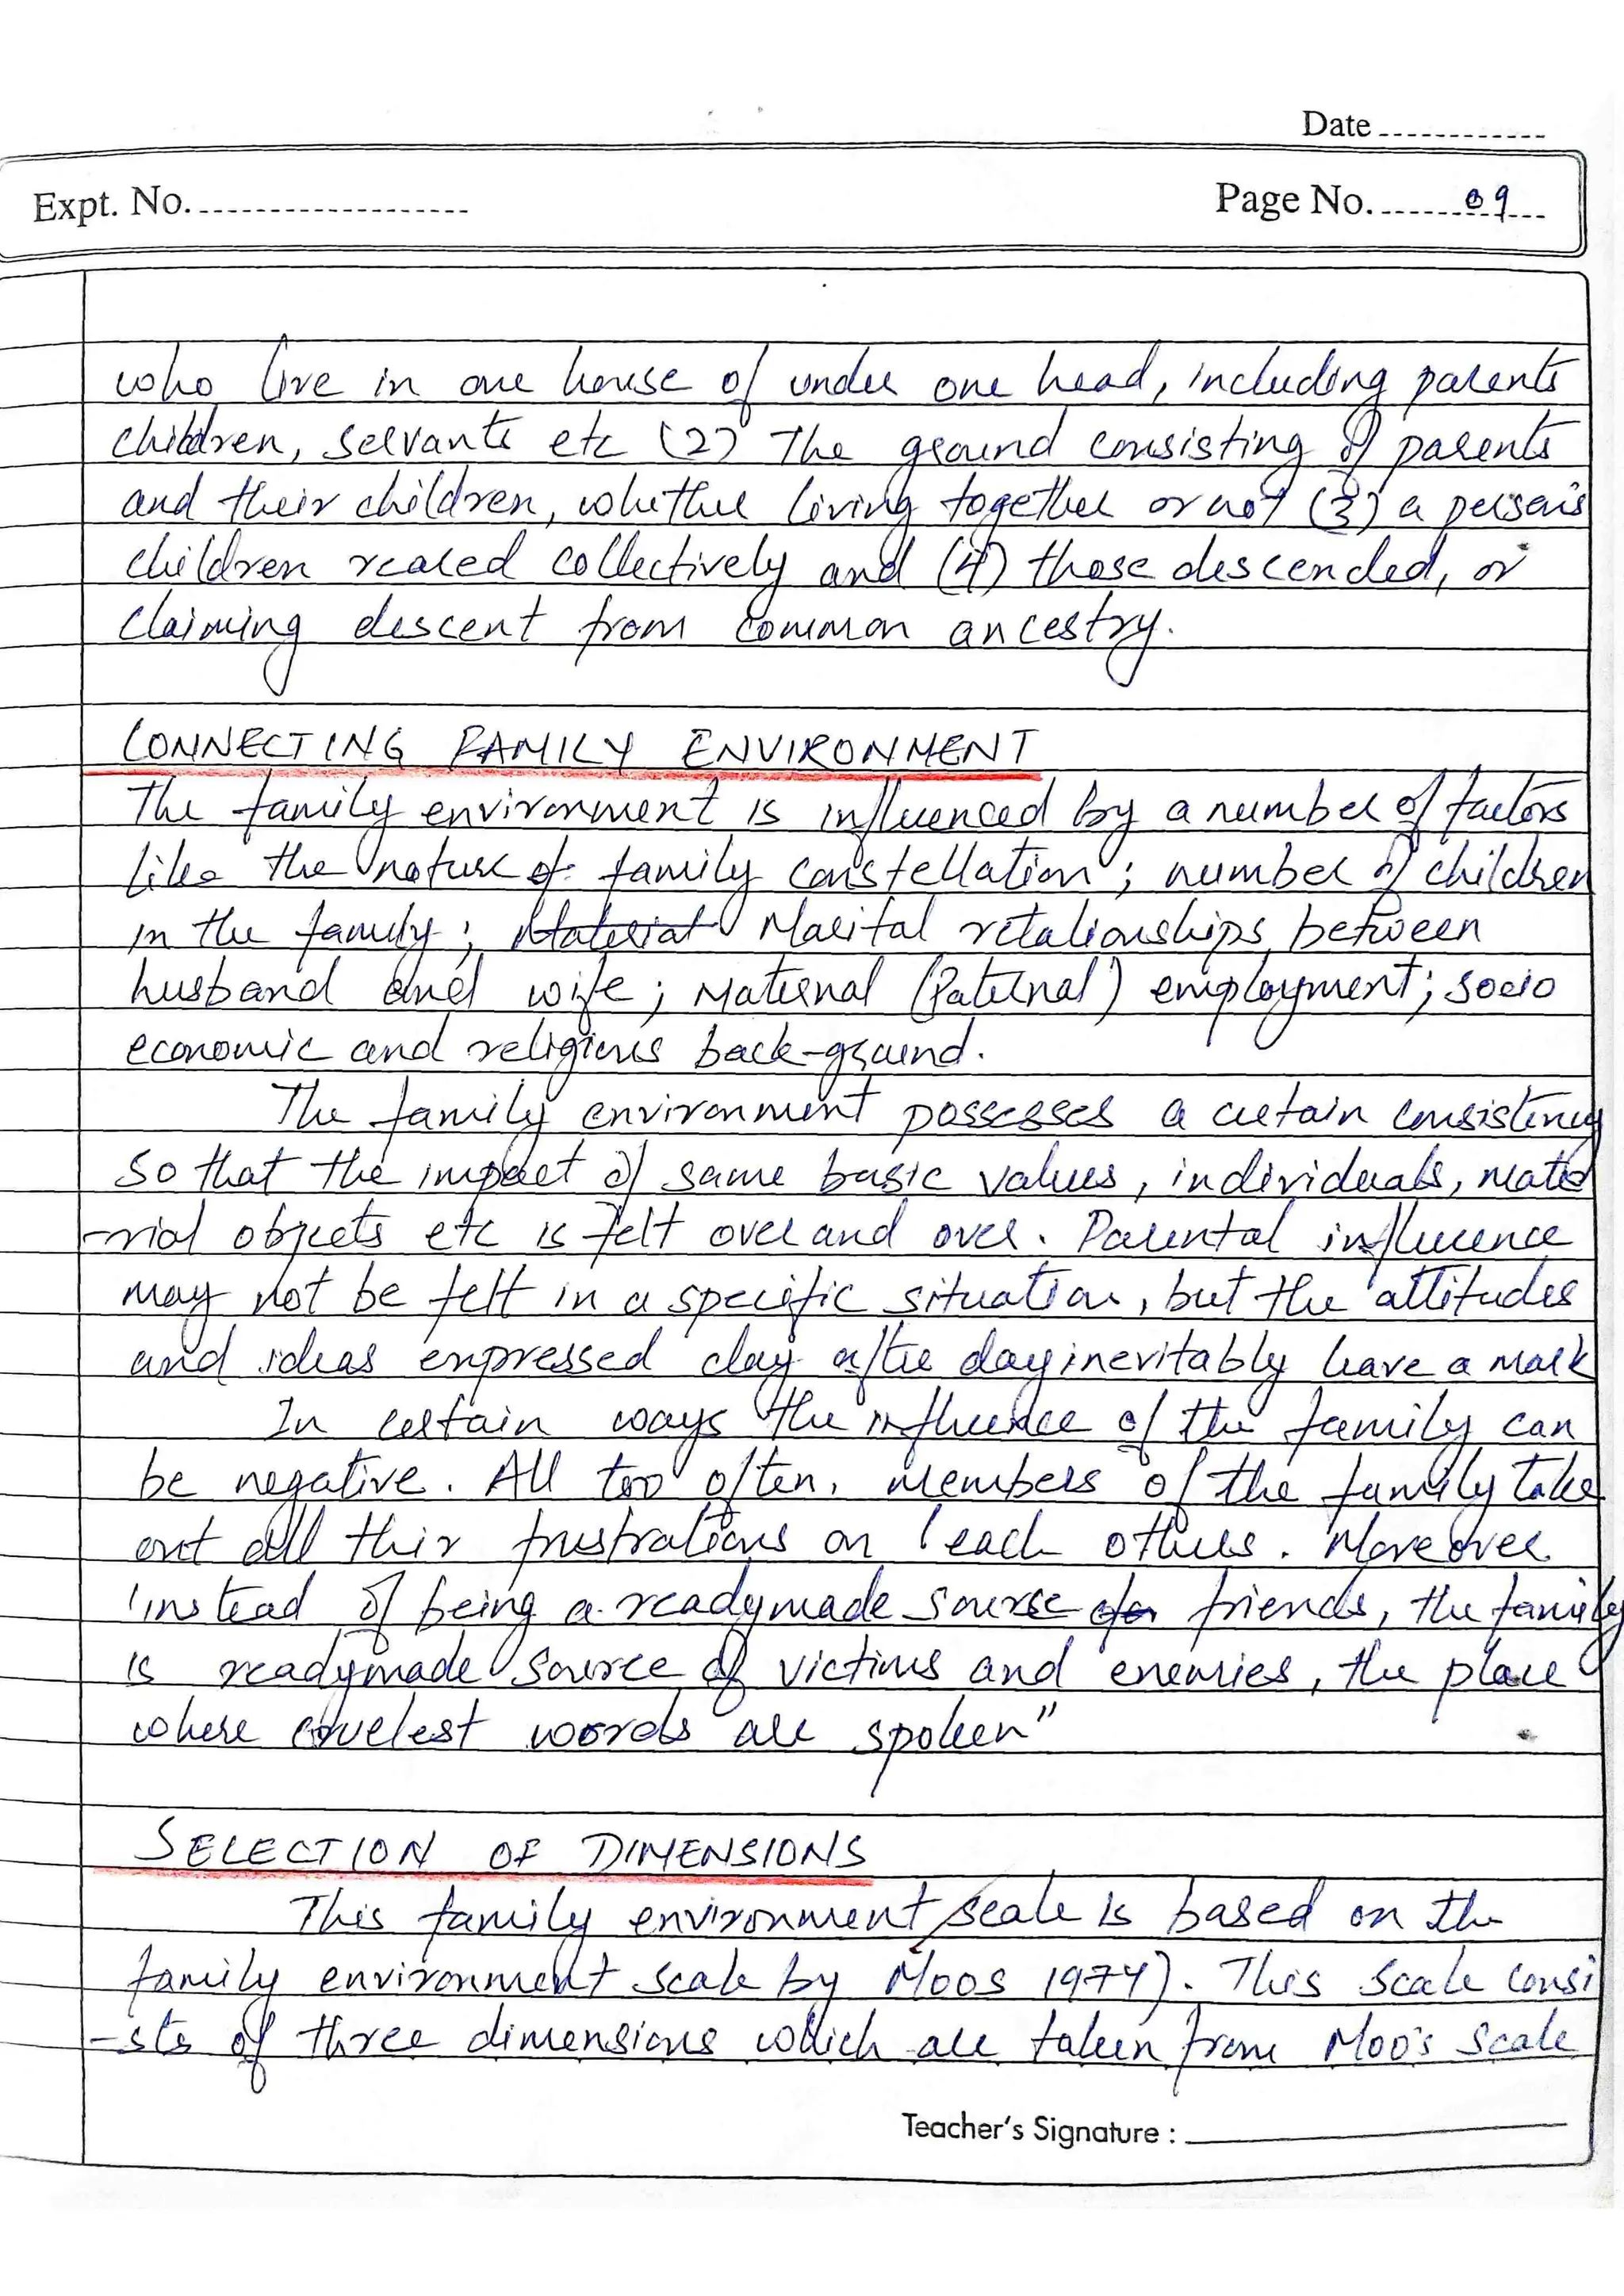 Date
Expt. No.
Page No. 09
who live in one house of under one head, including parents
children, servants etc (2) The ground consisting of parents
and their children, whether living together or not (3) a person's
children reared collectively and (4) those descended, or
claiming descent from common ancestry.
CONNECTING FAMILY ENVIRONMENT
The family environment is influenced by a number of factors
like the nature of family constellation; number of children
in the family; Material Marital relationships between
husband and wife; Maternal (Paternal) employment; socio
economic and religious back-ground.
The family environment possesses a certain consistency
so that the impact of same basic values, individuals, mate
-rial objects etc is felt over and over. Parental influence
may not be felt in a specific situation, but the attitudes
and ideas expressed day after day inevitably leave a mark
In certain ways the influence of the family can
be negative. All too often, members of the family take
out all their frustrations on 'each others. Moreover
'instead of being a readymade source of friends, the family
is readymade source of victims and enemies, the place
where cruelest words are spoken"
SELECTION OF DIMENSIONS
This family environment scale is based on the
family environment scale by Moos 1974). This scale consi
-sts of three dimensions which are taken from Moo's scale
Teacher's Signature :